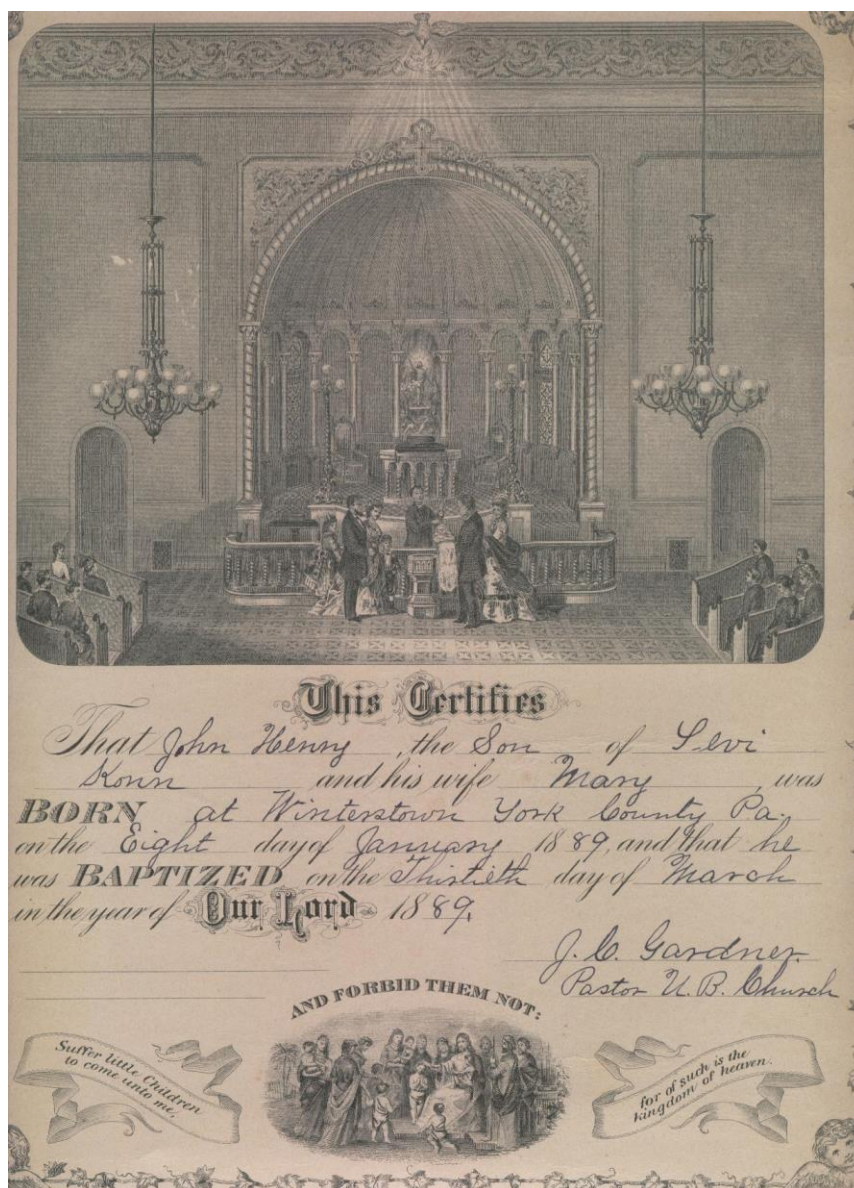 This Certifies
That John Henry, the Son of Levi
Konn and his wife Mary, was
BORN at Winterstown York County Pa.
on the Eight day of January 1889, and that he
was BAPTIZED on the Thirtieth day of March
in the year of Our Lord 1889.
J. C. Gardner
Pastor U. B. Church
AND FORBID THEM NOT:
Suffer little Children
to come unto me,
for of such is the
kingdom of heaven.